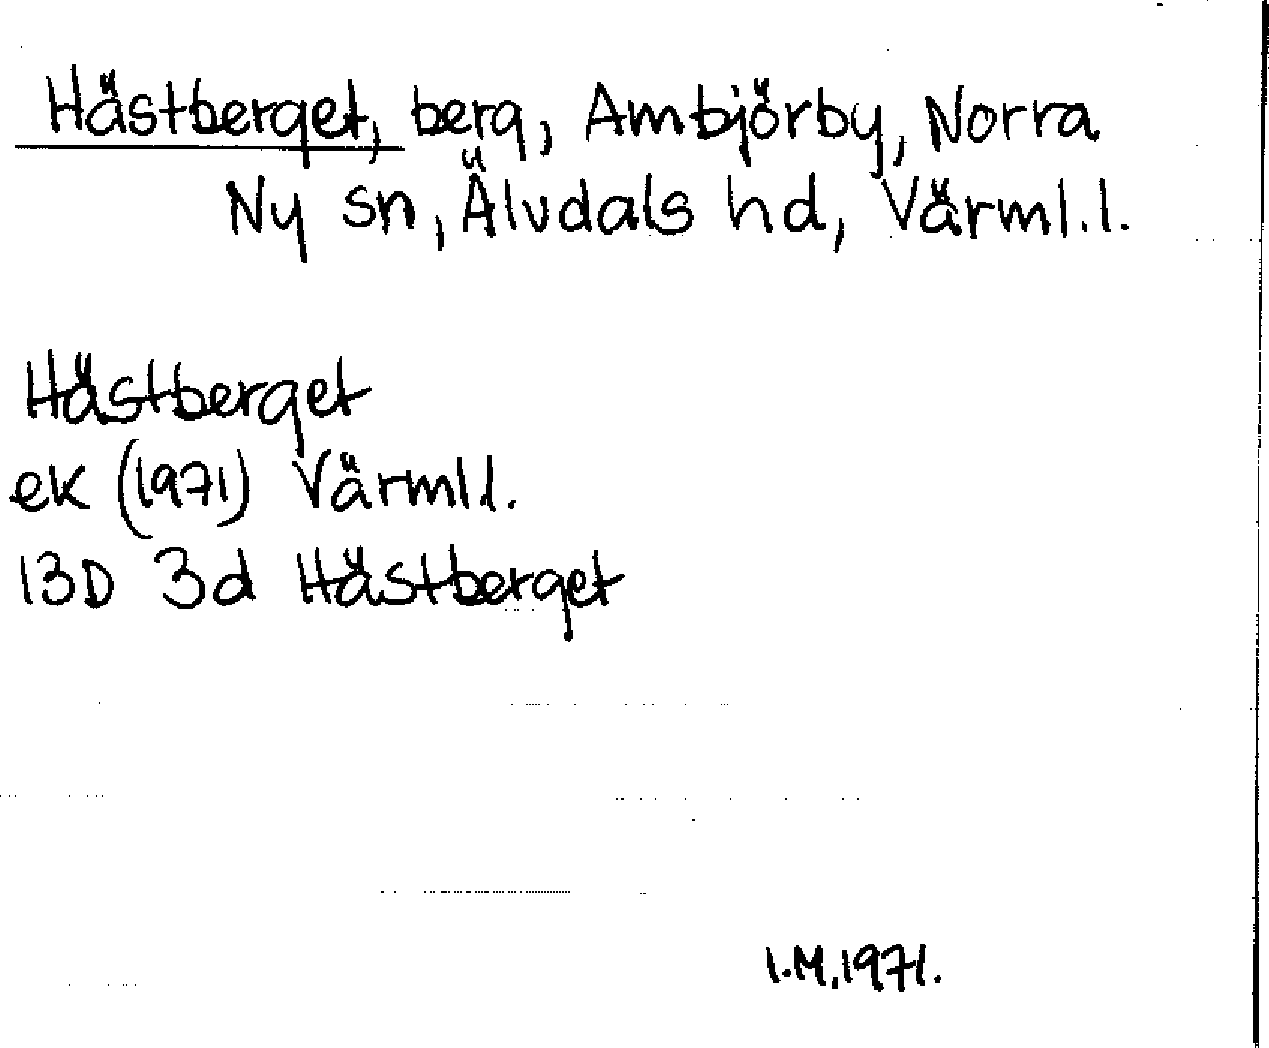 Hästberget, berg, Ambjörby, Norra
Ny sn, Älvdals hd, Värml.l.
Hästberget
ek (1971) Värml l.
13D 3d Hästberget
I.M. 1971.